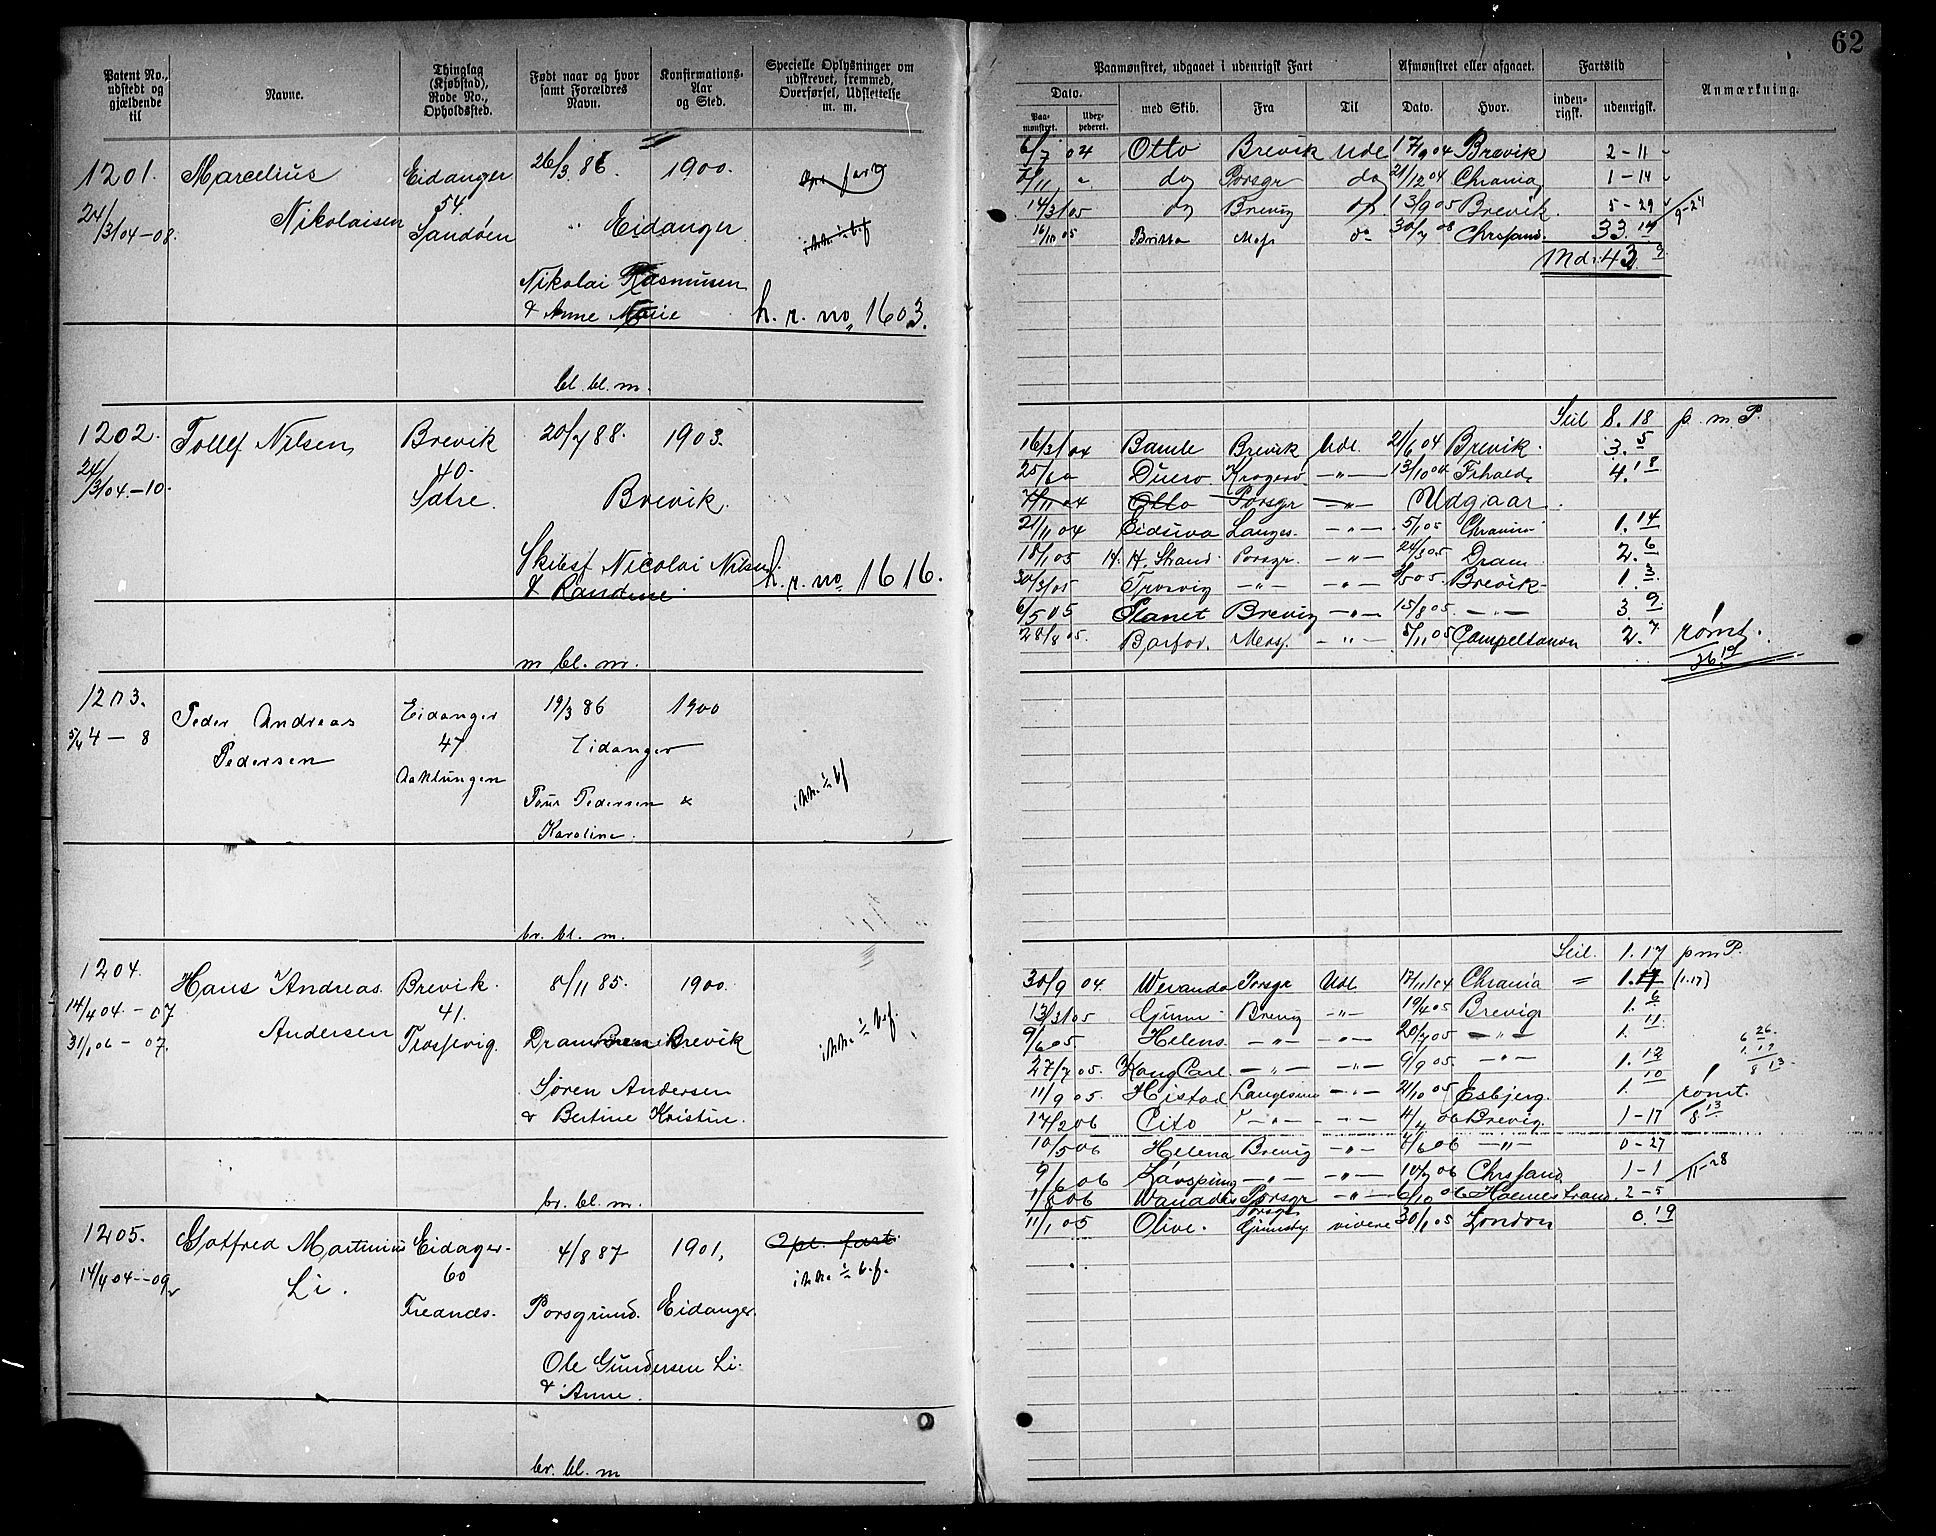 62
Patent No., udstedt og gjældende til
Navne.
Thinglag (Kjøbstad), Rode No., Opholdssted.
Født naar og hvor samt Forældres Navn.
Konfirmations-Aar og Sted.
Specielle Oplysninger om udskrevet, fremmed, Overførsel, Udslettelse m. m.
Paamønstret, udgaaet i udenrigsk Fart
Afmønstret eller afgaaet.
Fartstid
Anmærkning.
Dato.
med Skib.
Fra
Til
Dato.
Hvor.
inden-rigsk.
udenrigsk.
Paa-mønstret.
1201. Marcelius Eidanger 26/3 86. 1900.
24/3 04-08. Nikolaisen 54. Sandøen " Eidanger
Nikolai Rasmusen
& Anne Marie h. r. no 1603.
bl. bl. m.
6/7 04 Otto Brevik Udl 17/9 04 Brevik 2-11
7/11 " do Porsgr do 21/12 04 Chrania 1-14
14/3 05 do Brevig do 13/9 05 Brevik. 5-29 9-24
16/10 05 Moss do 30/7 08 Chrsand. 33.19
Md: 43.
1202. Tollef Nilsen Brevik 20/7 88. 1903.
24/3 04-10. 40. Satre. Brevik.
Skibsf Nicolai Nilsen
& Randine. h. r. no 1616.
m bl. m.
Seil 8.18 p. m P.
16/3 04 Bamle Brevik Udl. 21/6 04 Brevik. 3.5
25/6 04 Duero Kragerø -"- 13/10 04 Frhald. 4.18
7/11 04 Otto Porsgr -"- Udgaar.
21/11 04 Eidsiva Langes. -"- 5/1 05 Chrania 1.14
18/1 05 H. H. Strand Porsgr. -"- 24/3 05 Dram. 2.6
30/3 05 Trosvig -"- -"- 3/5 05. Brevik- 1.3
6/5 05 Planet Brevig -"- 15/8 05. -"- 3 9
28/8 05. -"- 5/11 05 Campeltown 2.7 rømt.
1203. Peder Andreas Eidanger 19/3 86 1900
5/4 4-8 Pedersen 47 Eidanger
Pedersen &
Karoline. ikke i b.f
br. bl. m.
1204. Hans Andreas Brevik. 8/11 85. 1900.
14/4 04-07 Andersen 41.
31/1 06-07. Trosvig. Brevik ikke i b.f.
Søren Andersen
& Bertine Kristin.
br. bl. m.
Seil. 1.17 p m P.
30/9 04. Weranda Porsgr Udl. 17/11 04 Chrania = 1.17 (1.17)
13/3 05 Gunn Brevig -"- 19/4 05 Brevig 1.6
9/6 05 Helena -"- -"- 20/7 05 -"- 1.11
27/7 05. Kong Carl -"- -"- 9/9 05 -"- 1.12
11/9 05. Langesund -"- 21/10 05 Esbjerg. 1.10 rømt.
17/2 06 Cito -"- -"- 4/4 06 Brevig. 1-17 8 13
10/5 06 Helena Brevig -"- 7/6 06 -"- 0-27
9/6 06 -"- -"- 10/7 06 Chrsand 1-1 11-28
1/8 06 Wanadis Porsgr -"- 6/10 06 Holmestrand. 2-5
1205. Gotfred Martinius Eidager- 4/8 87 1901, 2pl. fart
14/4 04-09 Li. 60 ikke i b.f.
Porsgrund. Eidanger.
Ole Gundersen Li.
& Anne.
br. bl. m
11/1 05 Olive. Porsgr Grimsby videre 30/1 05 London 0.19